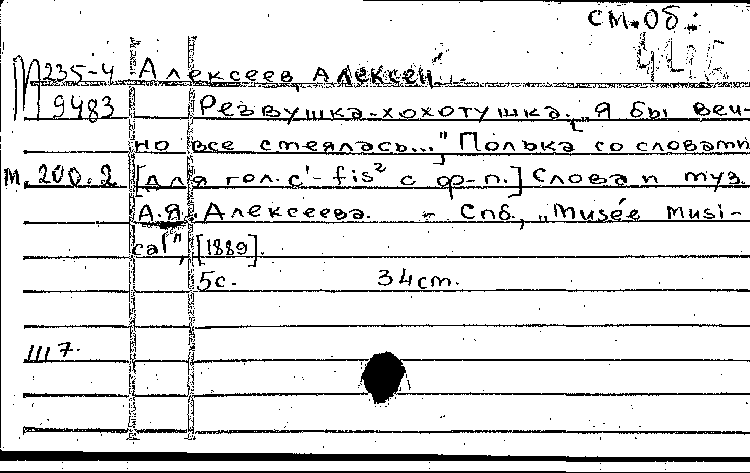 см.об.
М 235-4 Алексеев, Алексей...
9483 Резвушка-хохотушка. „Я бы веч-
но все смеялась..." Полька со словами
М. 200.2 [для гол. c¹-fis² с ф-п.] Слова и муз.
А.Я. Алексеева. - Спб., „Musée musi-
cal", [1889].
5с. 34см.